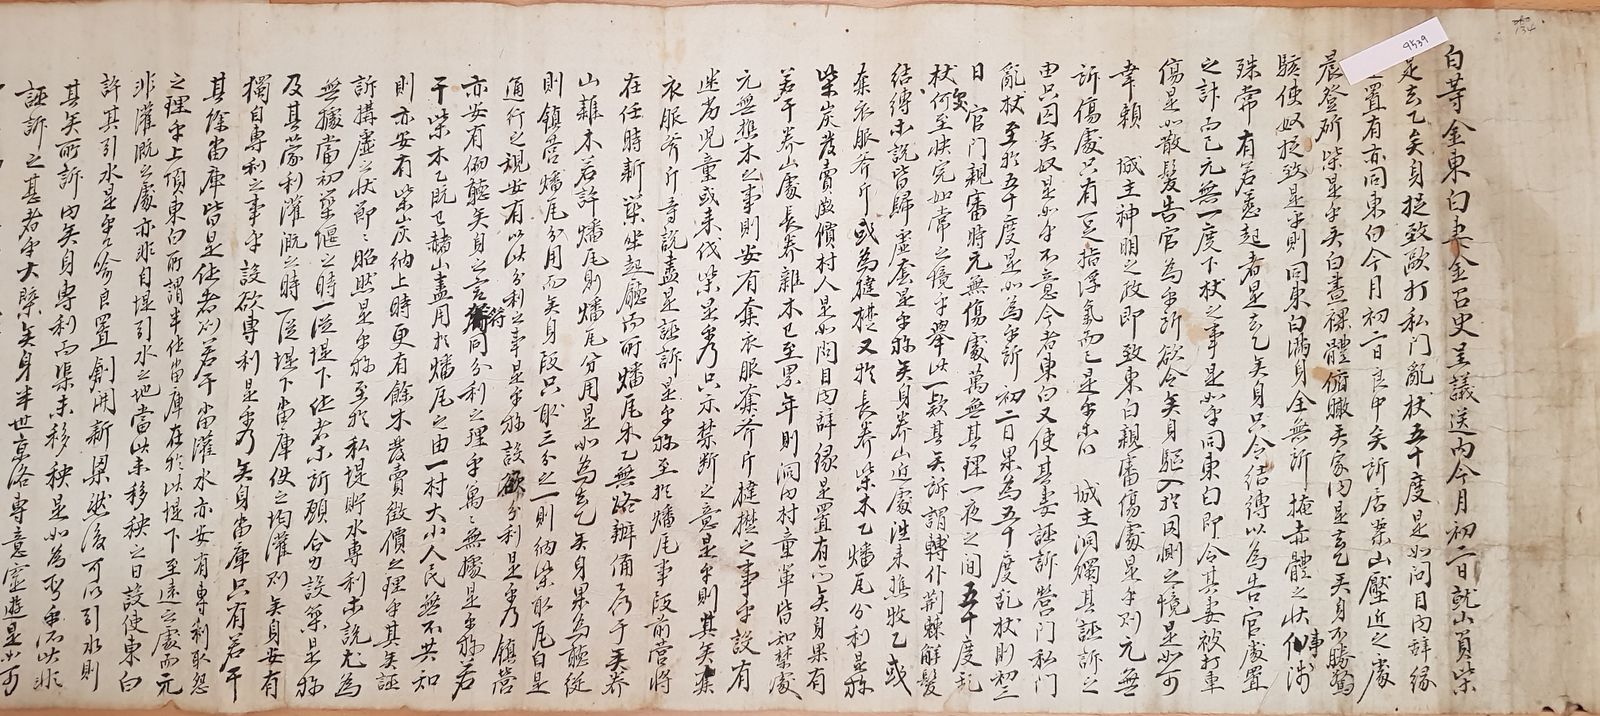 白等金東白妻金召史呈議送內今月初二日就山負柴
是去乙矣身捉致毆打私門亂杖五十度是如問目內辭緣
置有亦同東白今月初二日良中矣訴店柴山壓近之處
晨登斫柴是乎矣白晝裸體俯瞰矣家內是去乙矣身不勝驚
駭使奴捉致是乎則同東白滿身全無所掩赤體之狀事涉
殊常有若惹起者是去乙矣身只令結縛以爲告官處置
之計而已元無一度下杖之事是如乎同東白卽令其妻被打重
傷是如散髮告官爲乎所欲令矣身驅入於罔測之境是如可
幸賴城主神明之政卽致東白親審傷處是乎則元無
所傷處只有足指浮氣而已是乎等以城主洞燭其誣訴之
由只囚矣奴是如乎不意今者東白又使其妻誣訴營門私門
亂杖至於五十度是如爲乎所初二日果爲五十度亂杖則初三
日官門親審時元無傷處萬無其理一夜之間五十度亂
杖安何至快完如常之境乎擧此一款其矣訴謂轉仆荊棘解髮
結縛等說皆歸虛套是乎旀矣身養山近處徃來樵牧乙或
奪衣服斧斤或爲撻楚又於長養柴木乙燔瓦分利是旀
柴炭發賣徵價村人是如問目內辭緣是置有亦矣身果有
若干養山處長養雜木已至累年則洞內村童輩皆知禁處
元無樵木之事則安有奪衣服奪斧斤撻楚之事乎設有
迷劣兒童或來伐柴是乎乃只示禁斷之意是乎則其矣奪
衣服斧斤等說盡是誣訴是乎旀至於燔瓦事段前營將
在任時新築坐起廳而所燔瓦木乙無路辦備乃于矣養
山雜木若許燔瓦則燔瓦分用是如爲去乙矣身果爲聽從
則鎭營燔瓦分用而矣身段只取三分之一則納柴取瓦自是
通行之規安有以此分利之事是乎旀設欲分利是乎乃鎭營
亦安有俯聽矣身之言符同分利之理乎萬萬無據是乎旀若
干柴木乙旣已赭山盡用於燔瓦之由一村大小人民無不共知
則亦安有柴炭納上時更有餘木發賣徵價之理乎其矣誣
訴搆虛之狀節節昭然是乎旀至於私堤貯水專利等說尤爲
無據當初築偃之時一從堤下作者等所願合力設築是旀
及其蒙利灌漑之時一從堤下畓庫佚之均灌則矣身安有
獨自專利之事乎設欲專利是乎乃矣身畓庫只有若干
其餘畓庫皆是作者則若干畓灌水亦安有專利取怨
之理乎上項東白所謂半作畓庫在於此堤下至遠之處而元
非灌漑之處亦非自堤引水之地當此未移秧之日設使東白
許其引水是乎喩良置創開新渠然後可以引水則
其矣所訴內矣身專利而渠未移秧是如爲乎所此非
誣訴之甚者乎大槩矣身半世京洛專意虛遊是如可
9539
134